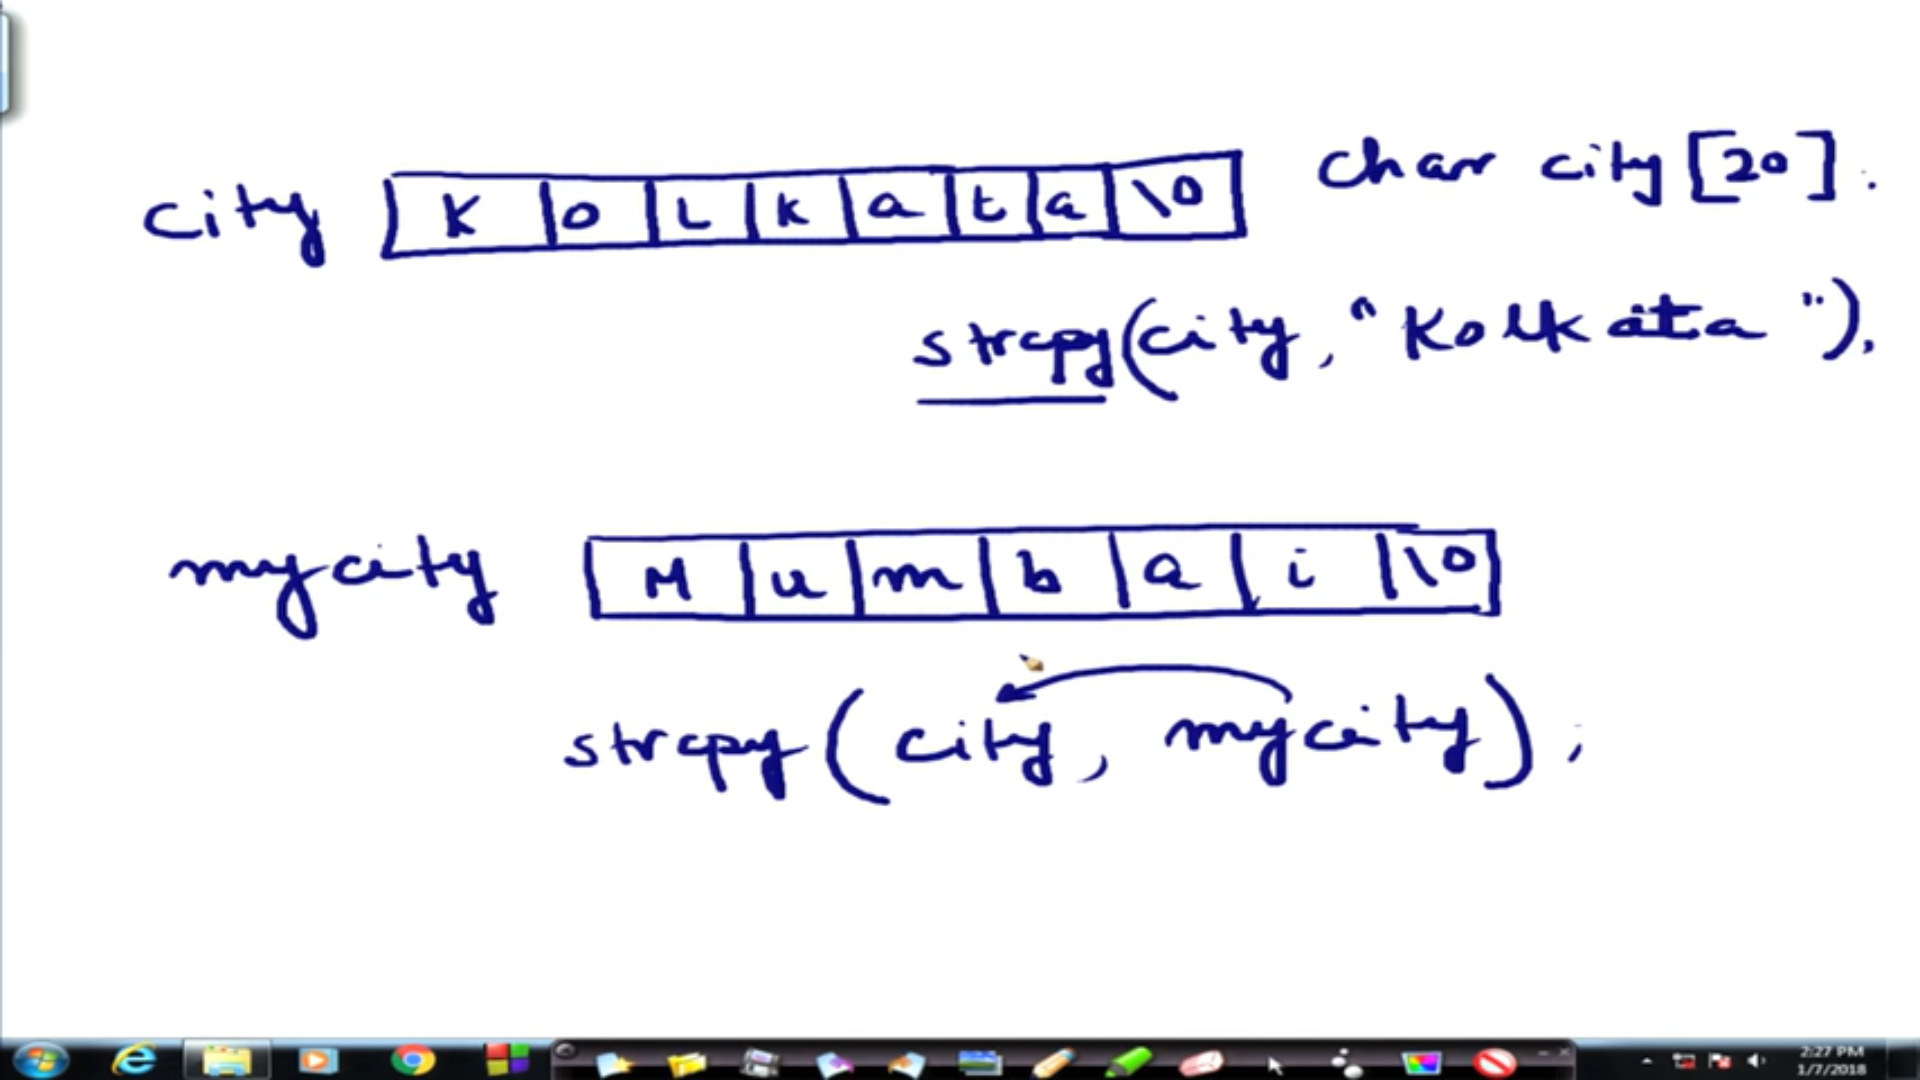 city K o L k a t a \0 char city [20].
strcpy(city, "Kolkata"),
mycity M u m b a i \0
strcpy(city, mycity);
2:27 PM
1/7/2018